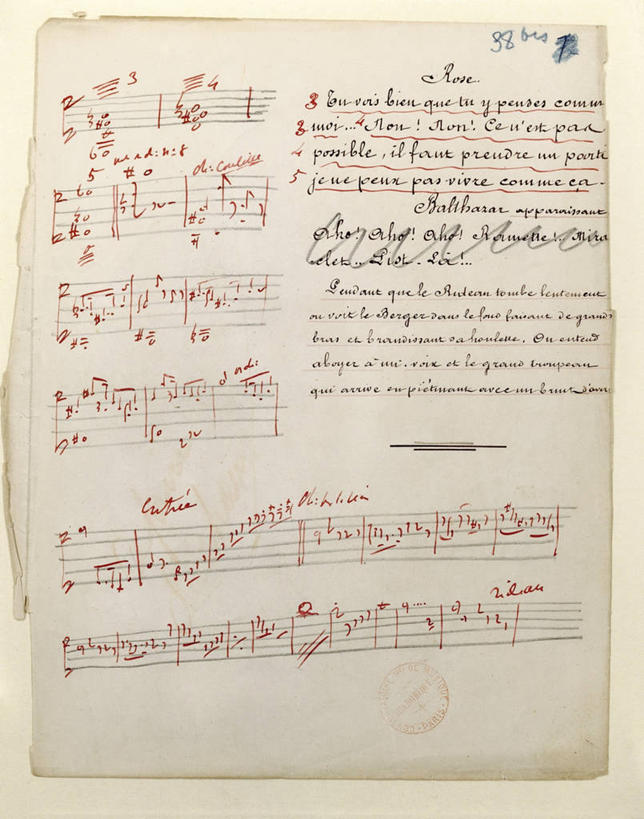 38 bis
3
4
Rose.
3 Tu vois bien que tu y penses comme
3 moi... 4 Non ! Non ! Ce n'est pas
4 possible, il faut prendre un parti
5 je ne peux pas vivre comme ça.
Balthazar apparaissant
Aho! Aho! Aho! Renviette!.. Mira
clet.. L'ist - Là!..
Pendant que le Rideau tombe lentement
on voit le Berger dans le fond faisant de grands
bras et brandissant sa houlette. On entend
aboyer à mi-voix et le grand troupeau
qui arrive en piétinant avec un bruit d'aver
5
Entrée
rideau
PARIS